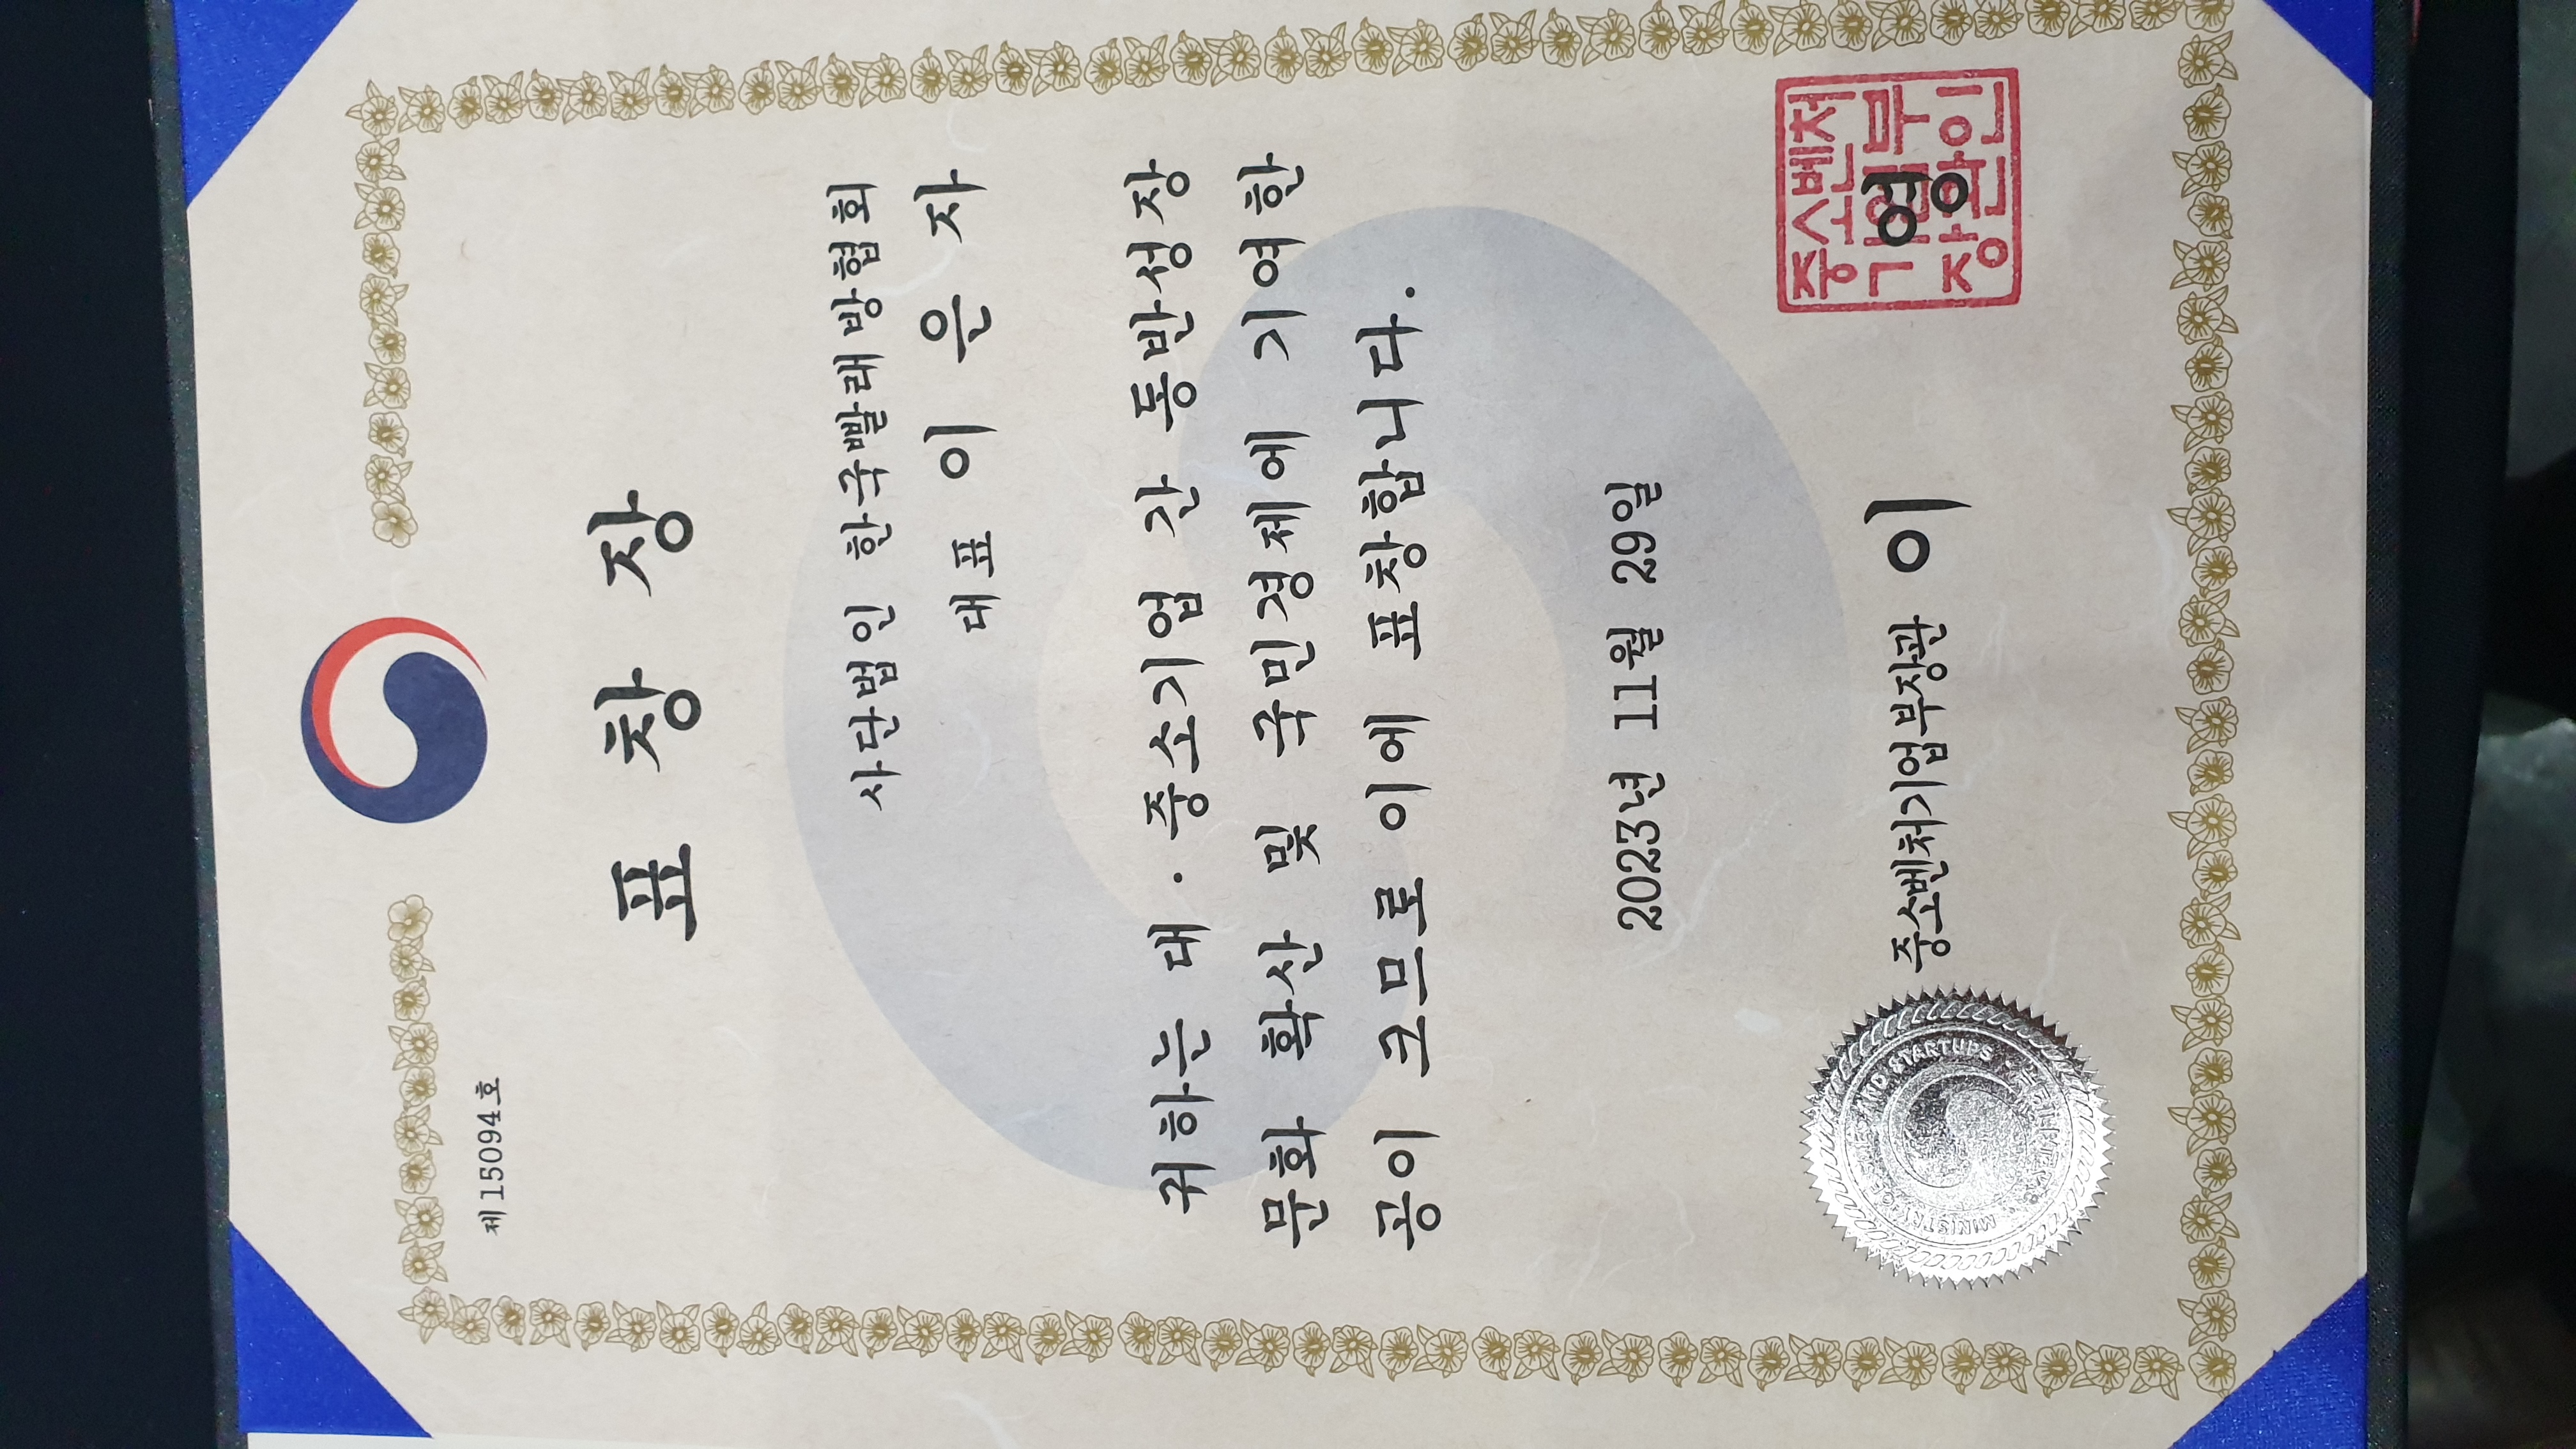 제15094호
표 창 장
사단법인 한국빨래방협회
대표 이 은 자
귀하는 대 · 중소기업 간 동반성장
문화 확산 및 국민경제에 기여한
공이 크므로 이에 표창합니다.
2023년 11월 29일
중소벤처기업부장관 이 영
중소벤처
기업부
장관인
MINISTRY OF SMES AND STARTUPS